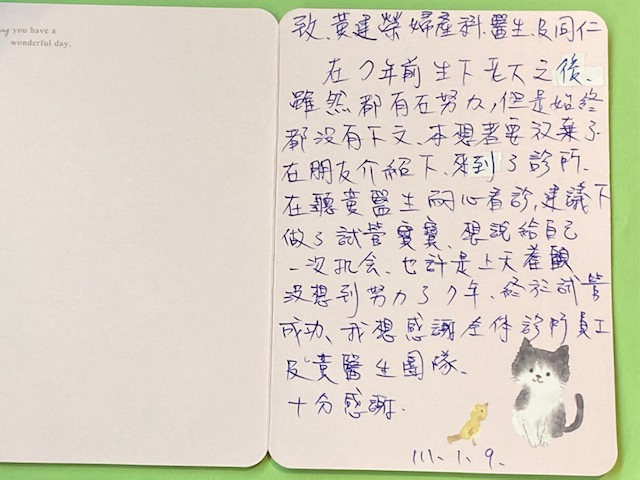 you have a
wonderful day.
致、黃建榮婦產科醫生及同仁
在7年前生下老大之後、
雖然都有在努力,但是始終
都沒有下文、本想著要放棄了
在朋友介紹下、來到了診所、
在聽黃醫生耐心看診,建議下
做了試管寶寶、想說給自己
一次机会、也許是上天眷顧
沒想到努力了7年、終於試管
成功、我想感謝全体診所員工
及黃醫生團隊、
十分感謝.
111. 1. 9.